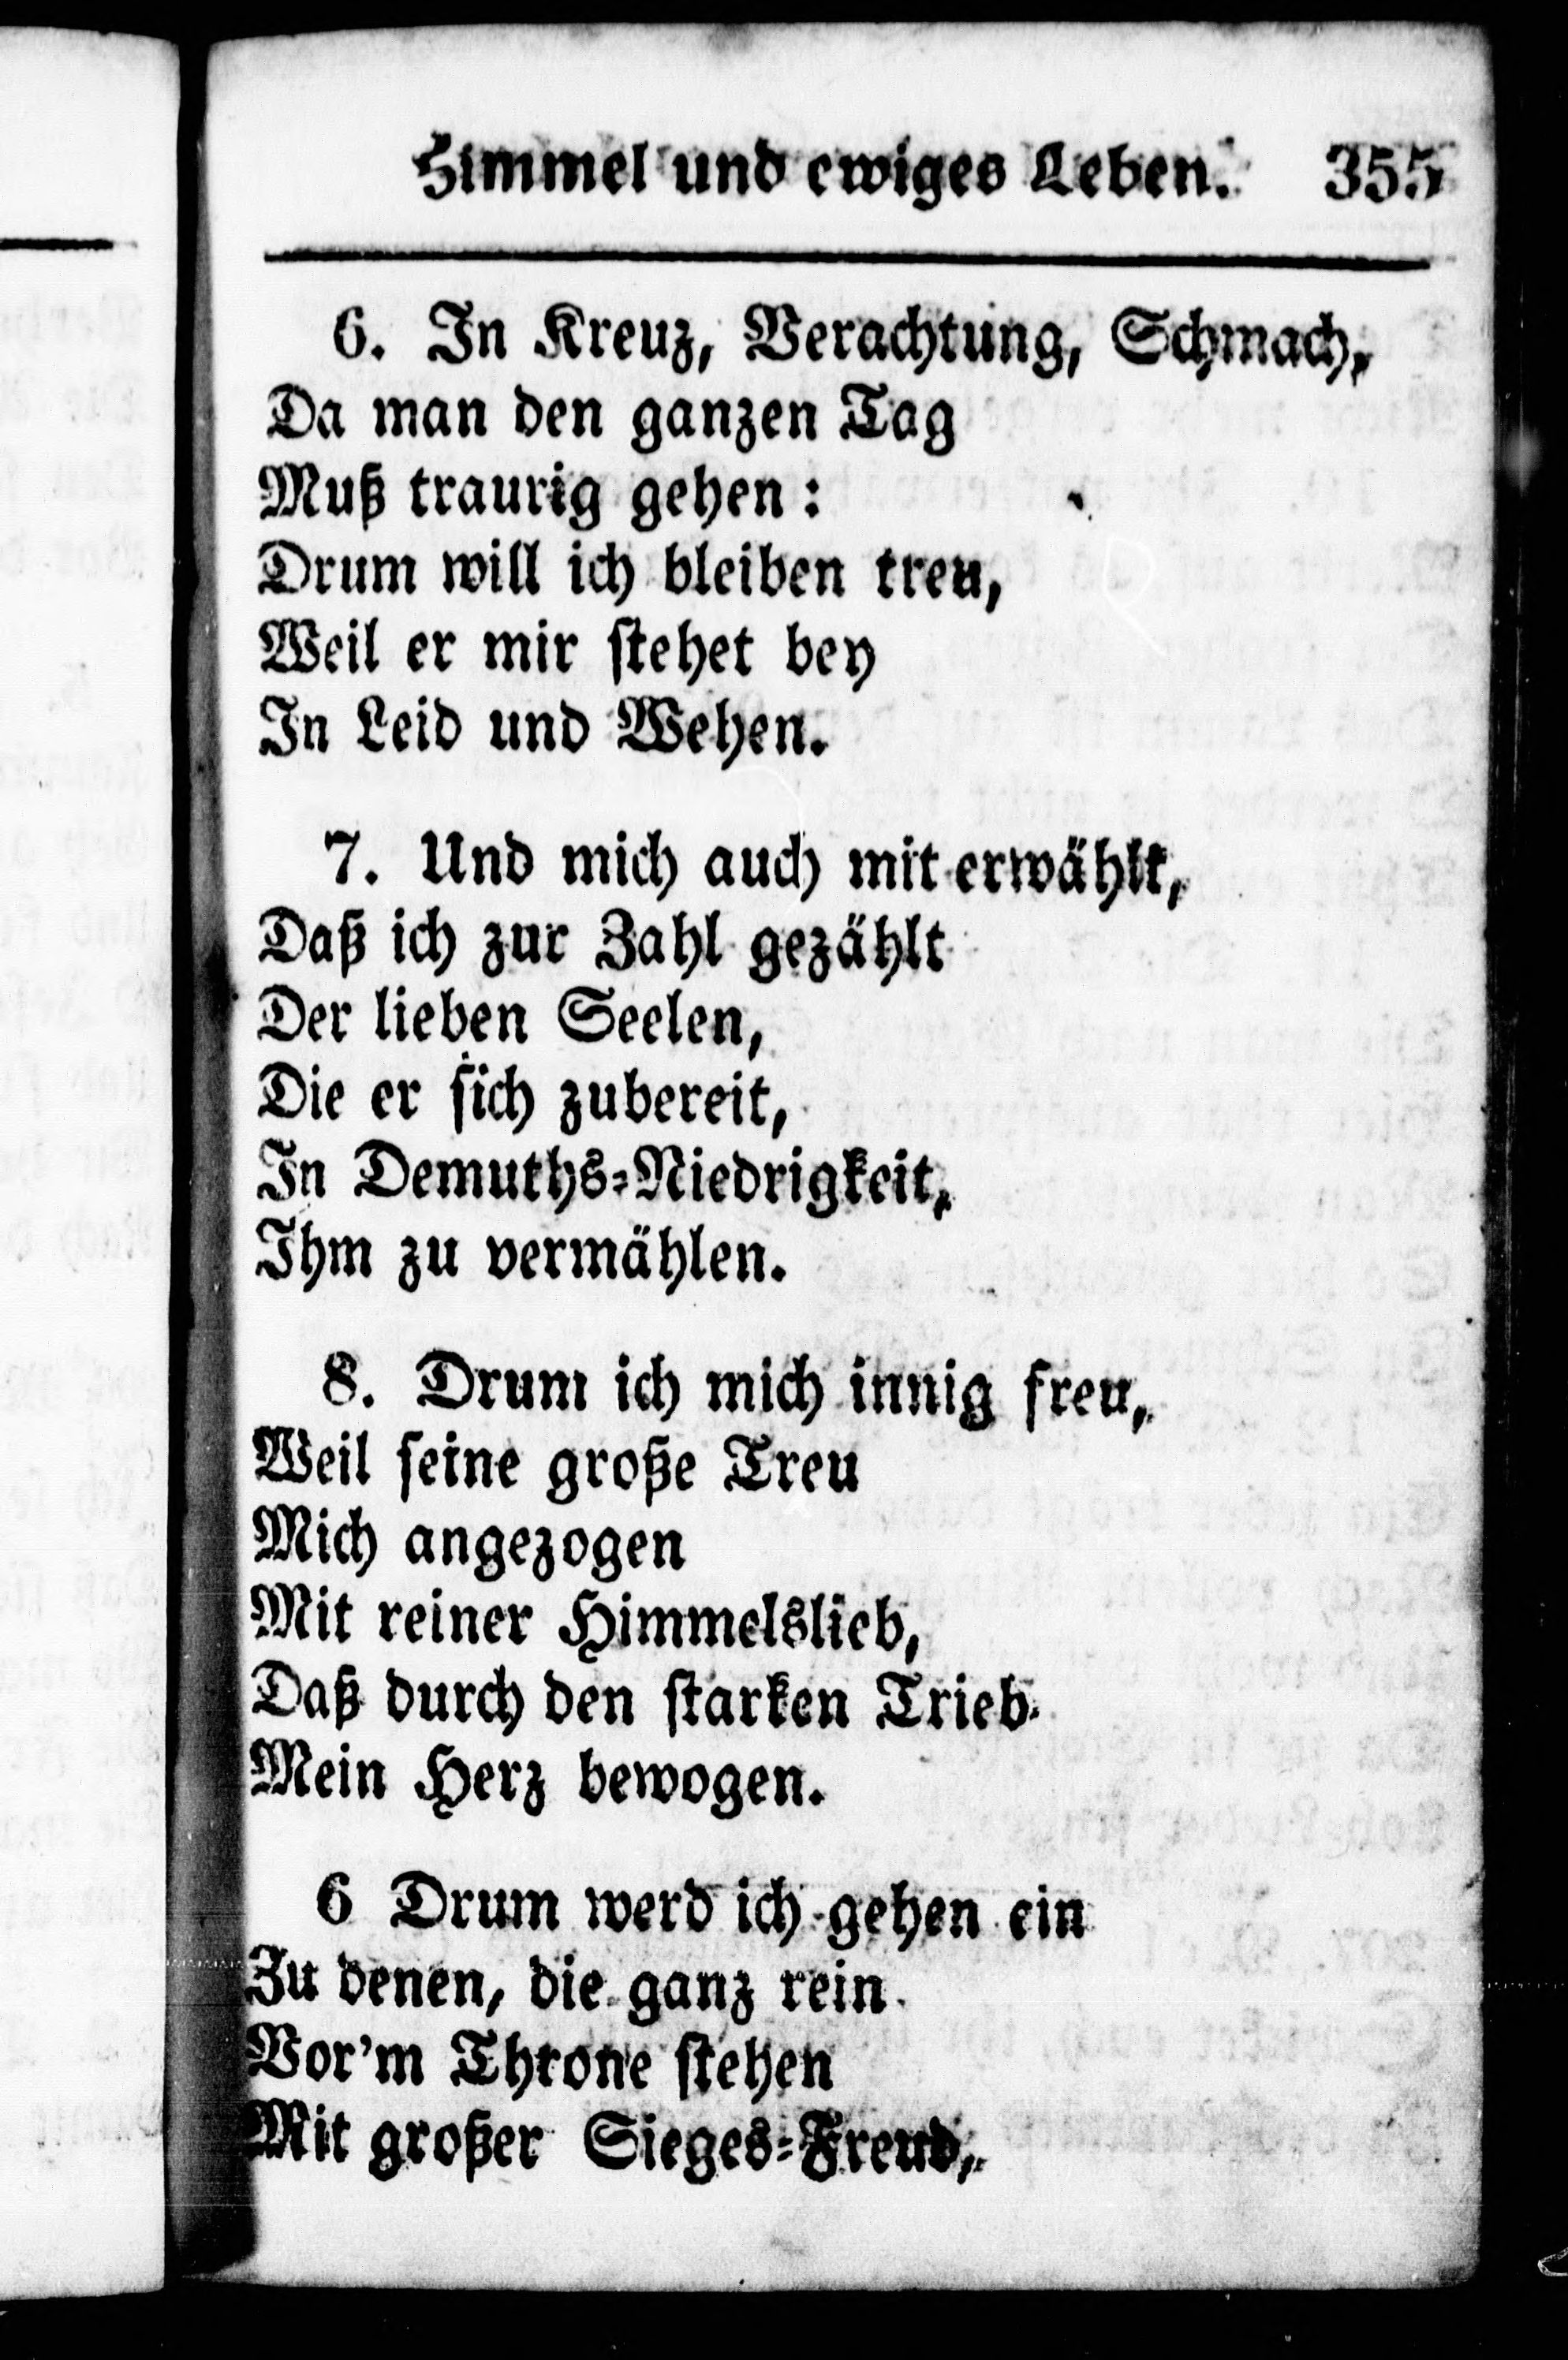 Himmel und ewiges Leben. 355
6. In Kreuz, Verachtung, Schmach,
Da man den ganzen Tag
Muß traurig gehen:
Drum will ich bleiben treu,
Weil er mir stehet bey
In Leid und Wehen.
7. Und mich auch mit erwählt,
Daß ich zur Zahl gezählt
Der lieben Seelen,
Die er sich zubereit,
In Demuths-Niedrigkeit,
Ihm zu vermählen.
8. Drum ich mich innig freu,
Weil seine große Treu
Mich angezogen
Mit reiner Himmelslieb,
Daß durch den starken Trieb
Mein Herz bewogen.
6 Drum werd ich gehen ein
Zu denen, die ganz rein
Vor'm Throne stehen
Mit großer Sieges-Freud,